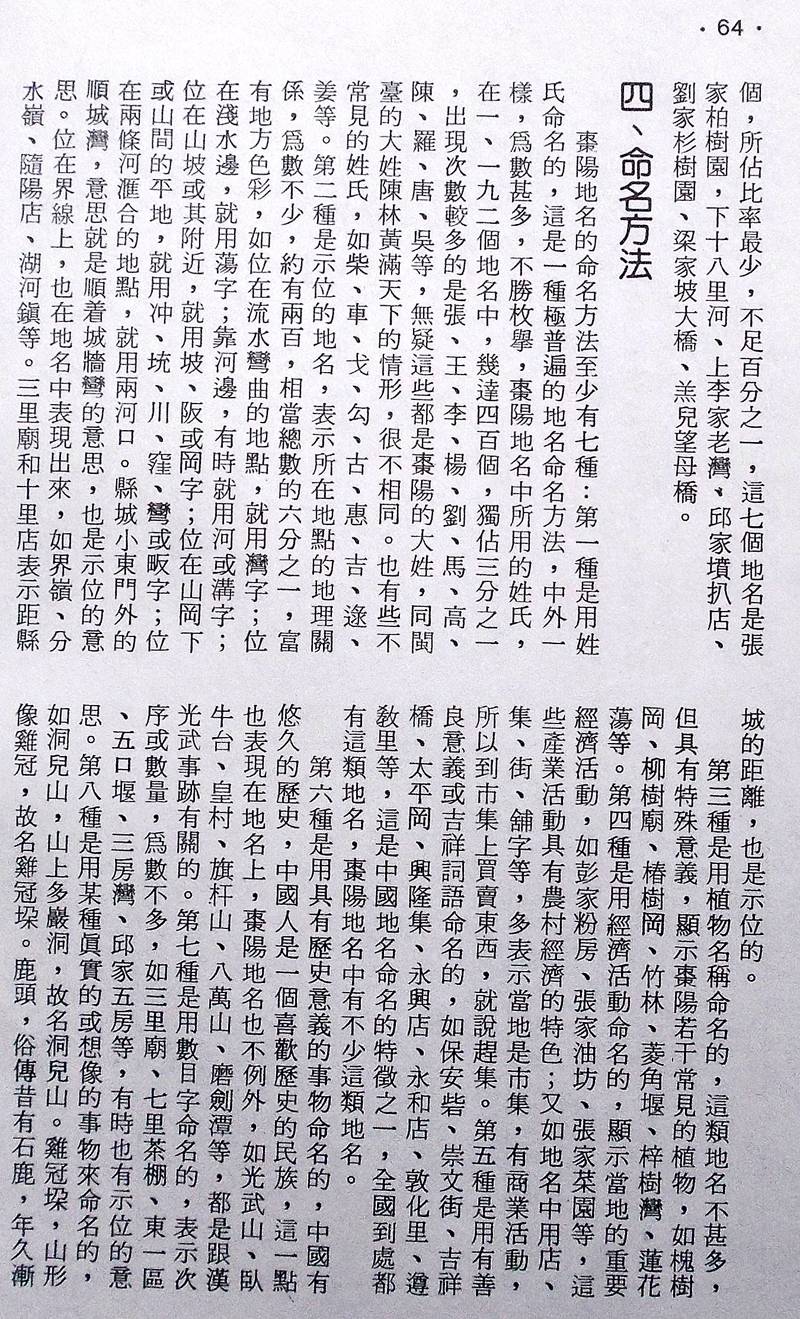 ·64·
個，所佔比率最少，不足百分之一，這七個地名是張
家柏樹園，下十八里河、上李家老灣、邱家墳扒店、
劉家杉樹園、梁家坡大橋、羔兒望母橋。
四、命名方法
棗陽地名的命名方法至少有七種：第一種是用姓
氏命名的，這是一種極普遍的地名命名方法，中外一
樣，爲數甚多，不勝枚擧，棗陽地名中所用的姓氏，
在一、一九二個地名中，幾達四百個，獨佔三分之一
，出現次數較多的是張、王、李、楊、劉、馬、高、
陳、羅、唐、吳等，無疑這些都是棗陽的大姓，同閩
臺的大姓陳林黃滿天下的情形，很不相同。也有些不
常見的姓氏，如柴、車、戈、勾、古、惠、吉、逯、
姜等。第二種是示位的地名，表示所在地點的地理關
係，爲數不少，約有兩百，相當總數的六分之一，富
有地方色彩，如位在流水彎曲的地點，就用灣字；位
在淺水邊，就用蕩字；靠河邊，有時就用河或溝字；
位在山坡或其附近，就用坡、阪或岡字；位在山岡下
或山間的平地，就用冲、垅、川、窪、彎或畈字；位
在兩條河滙合的地點，就用兩河口。縣城小東門外的
順城灣，意思就是順着城牆彎的意思，也是示位的意
思。位在界線上，也在地名中表現出來，如界嶺、分
水嶺、隨陽店、湖河鎭等。三里廟和十里店表示距縣
城的距離，也是示位的。
第三種是用植物名稱命名的，這類地名不甚多，
但具有特殊意義，顯示棗陽若干常見的植物，如槐樹
岡、柳樹廟、椿樹岡、竹林、菱角堰、梓樹灣、蓮花
蕩等。第四種是用經濟活動命名的，顯示當地的重要
經濟活動，如彭家粉房、張家油坊、張家菜園等，這
些產業活動具有農村經濟的特色；又如地名中用店、
集、街、舖字等，多表示當地是市集，有商業活動，
所以到市集上買賣東西，就說趕集。第五種是用有善
良意義或吉祥詞語命名的，如保安砦、崇文街、吉祥
橋、太平岡、興隆集、永興店、永和店、敦化里、遵
敎里等，這是中國地名命名的特徵之一，全國到處都
有這類地名，棗陽地名中有不少這類地名。
第六種是用具有歷史意義的事物命名的，中國有
悠久的歷史，中國人是一個喜歡歷史的民族，這一點
也表現在地名上，棗陽地名也不例外，如光武山、臥
牛台、皇村、旗杆山、八萬山、磨劍潭等，都是跟漢
光武事跡有關的。第七種是用數目字命名的，表示次
序或數量，爲數不多，如三里廟、七里茶棚、東一區
、五口堰、三房灣、邱家五房等，有時也有示位的意
思。第八種是用某種眞實的或想像的事物來命名的，
如洞兒山，山上多巖洞，故名洞兒山。雞冠垜，山形
像雞冠，故名雞冠垜。鹿頭，俗傳昔有石鹿，年久漸